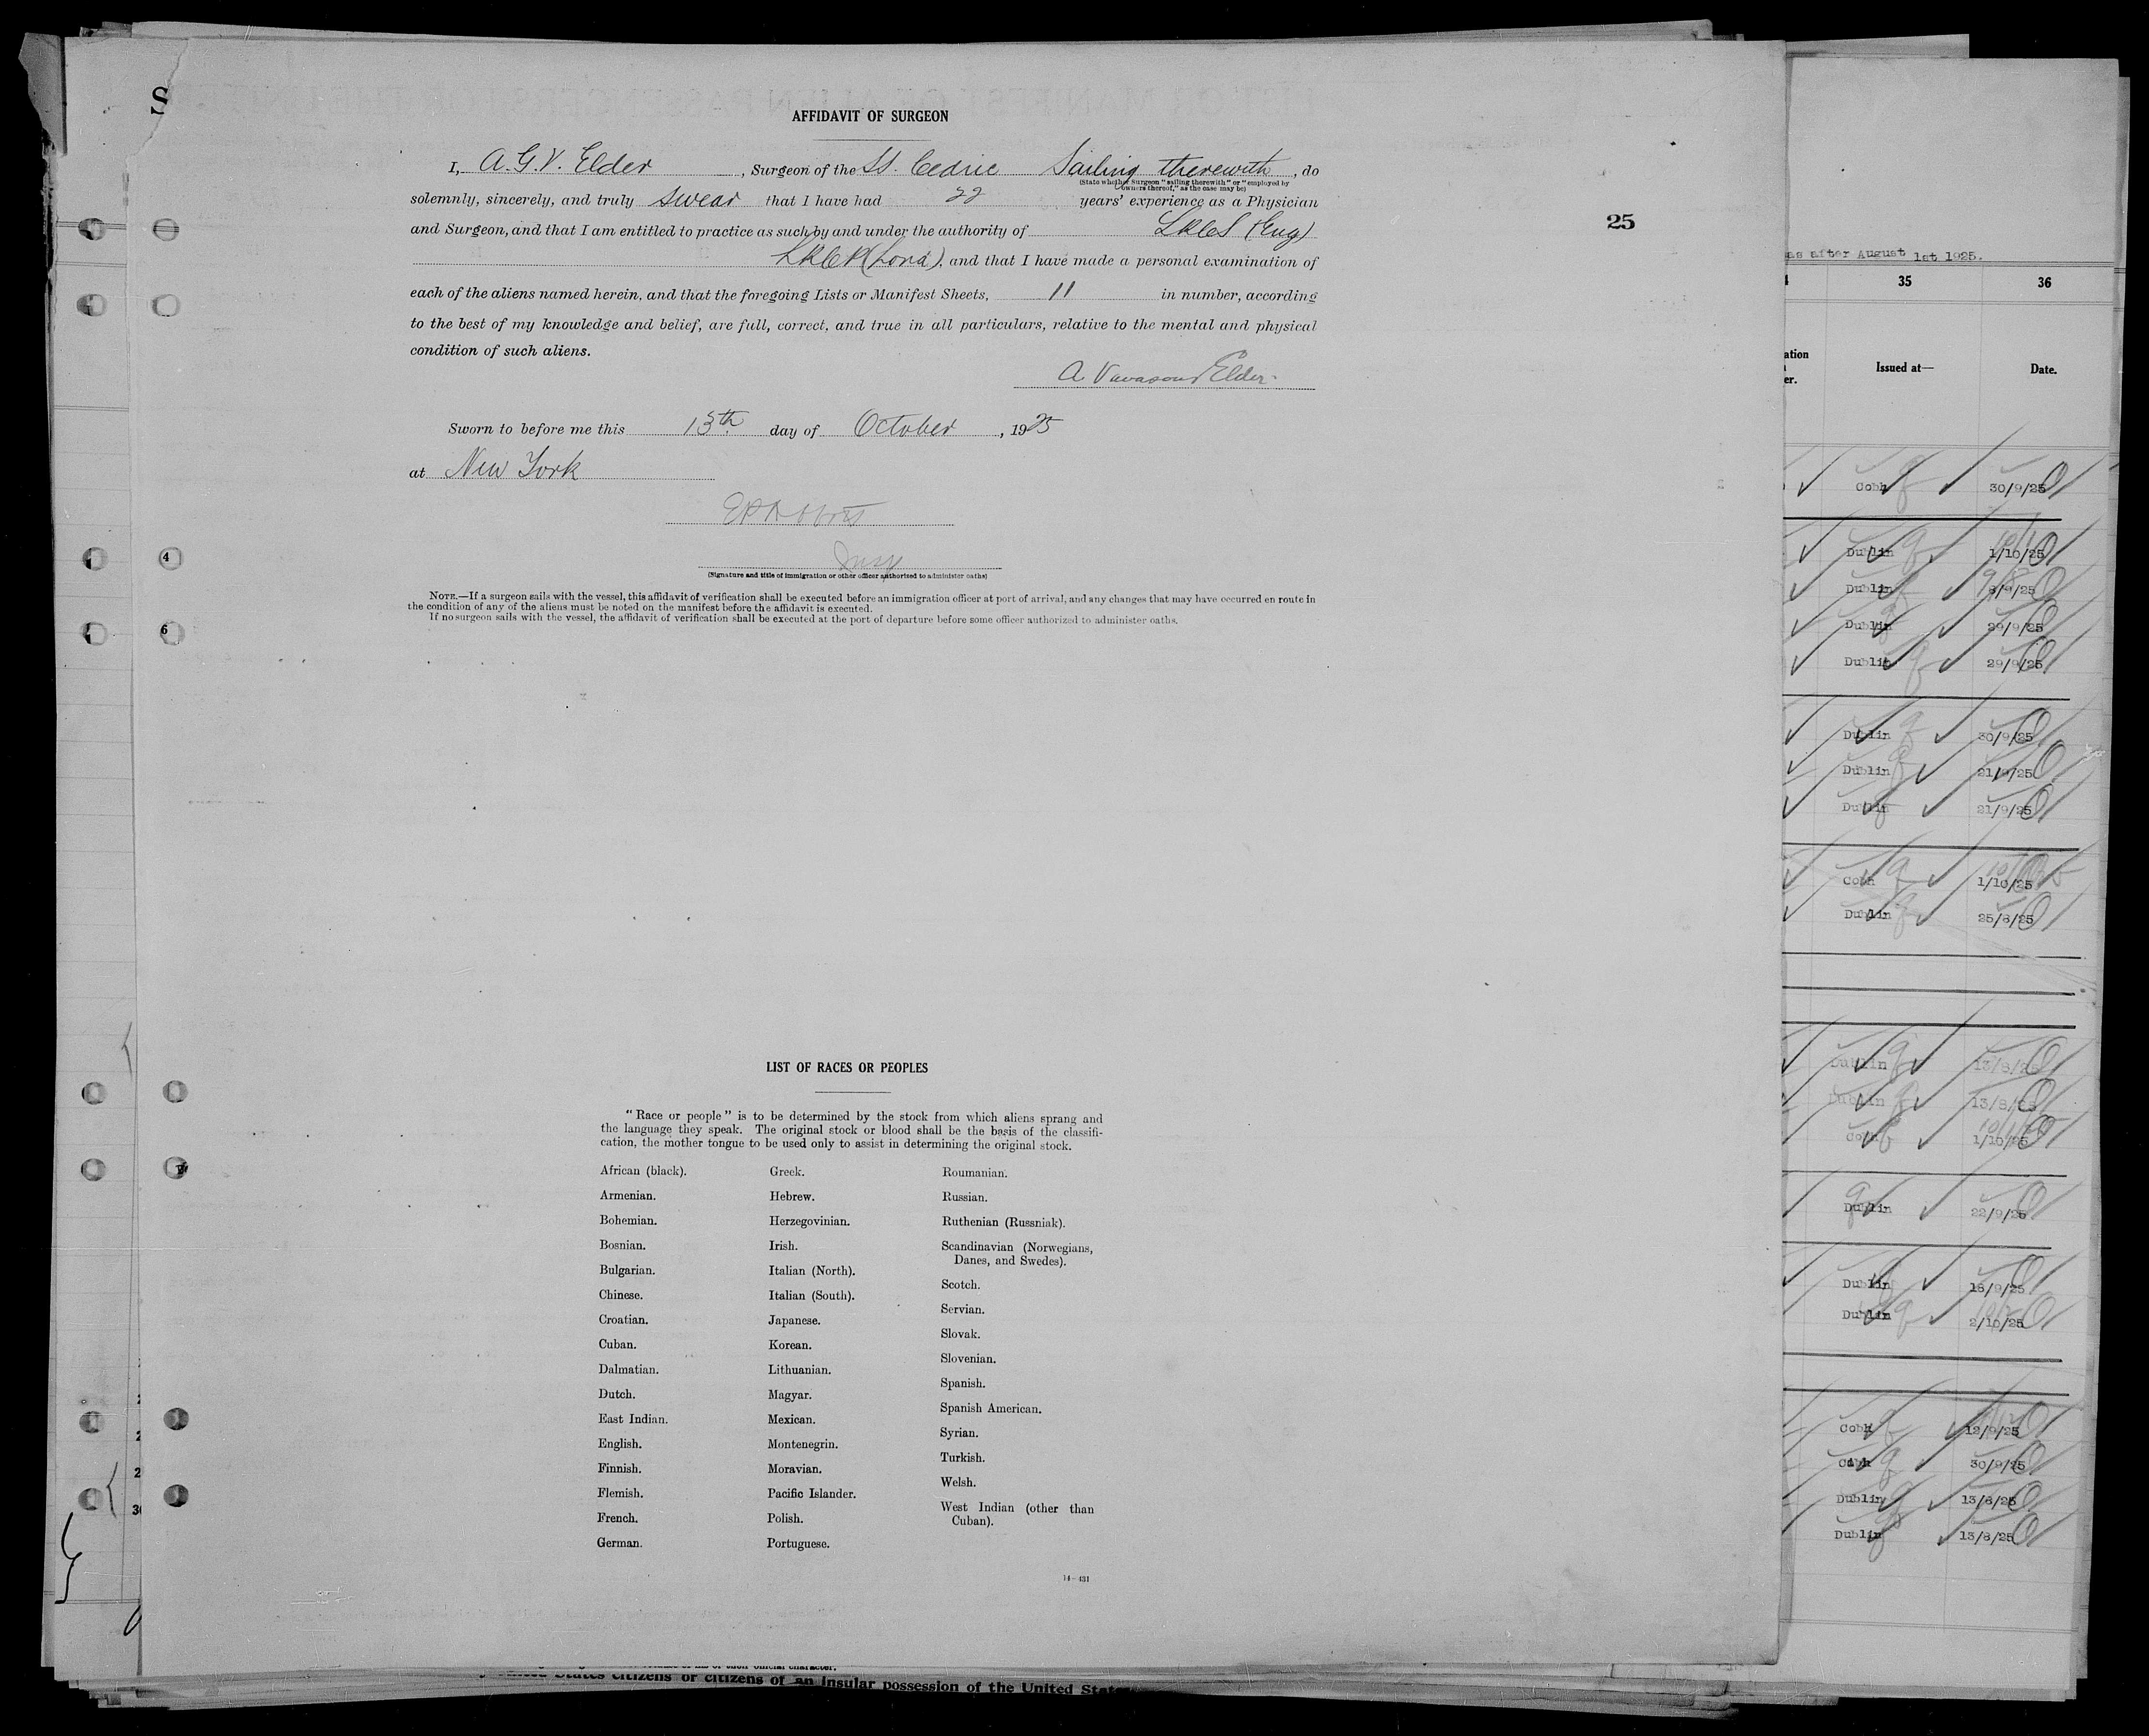 S
AFFIDAVIT OF SURGEON
I, A. G. V. Elder, Surgeon of the SS. Cedric Sailing therewith, do
(State whether Surgeon "sailing therewith" or "employed by
owners thereof," as the case may be)
solemnly, sincerely, and truly swear that I have had 22 years' experience as a Physician
and Surgeon, and that I am entitled to practice as such by and under the authority of LRCS (Eng)
LRCP (Lond), and that I have made a personal examination of
each of the aliens named herein, and that the foregoing Lists or Manifest Sheets, 11 in number, according
to the best of my knowledge and belief, are full, correct, and true in all particulars, relative to the mental and physical
condition of such aliens.
A Vavasour Elder.
Sworn to before me this 13th day of October, 1925
at New York
Insp
(Signature and title of immigration or other officer authorized to administer oaths)
NOTE.—If a surgeon sails with the vessel, this affidavit of verification shall be executed before an immigration officer at port of arrival, and any changes that may have occurred en route in
the condition of any of the aliens must be noted on the manifest before the affidavit is executed.
If no surgeon sails with the vessel, the affidavit of verification shall be executed at the port of departure before some officer authorized to administer oaths.
25
4
6
LIST OF RACES OR PEOPLES
"Race or people" is to be determined by the stock from which aliens sprang and
the language they speak. The original stock or blood shall be the basis of the classifi-
cation, the mother tongue to be used only to assist in determining the original stock.
African (black).
Armenian.
Bohemian.
Bosnian.
Bulgarian.
Chinese.
Croatian.
Cuban.
Dalmatian.
Dutch.
East Indian.
English.
Finnish.
Flemish.
French.
German.
Greek.
Hebrew.
Herzegovinian.
Irish.
Italian (North).
Italian (South).
Japanese.
Korean.
Lithuanian.
Magyar.
Mexican.
Montenegrin.
Moravian.
Pacific Islander.
Polish.
Portuguese.
Roumanian.
Russian.
Ruthenian (Russniak).
Scandinavian (Norwegians,
Danes, and Swedes).
Scotch.
Servian.
Slovak.
Slovenian.
Spanish.
Spanish American.
Syrian.
Turkish.
Welsh.
West Indian (other than
Cuban).
14—431
as after August 1st 1925.
35 36
Issued at— Date.
Cobh 30/9/25
Dublin 1/10/25
Dublin 8/9/25
Dublin 29/9/25
Dublin 29/9/25
Dublin 30/9/25
Dublin 21/9/25
Dublin 21/9/25
Cobh 1/10/25
Dublin 25/8/25
Dublin 13/8/25
Dublin 13/8/25
Cobh 1/10/25
Dublin 22/9/25
Dublin 18/9/25
Dublin 2/10/25
Cobh 12/9/25
Cobh 30/9/25
Dublin 13/8/25
Dublin 13/8/25
official character.
United States citizens or citizens of an insular possession of the United States